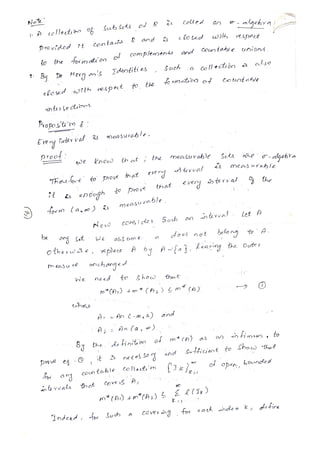 Note:
1. A collection of subsets of R is called an σ-algebra
provided it contains R and is closed with respect
to the formation of complements and countable unions
* By De Morgan's Identities, Such a collection is also
closed with respect to the formation of countable
intersections
Proposition 8:
Every interval is measurable.
proof:
we know that; the measurable sets are σ-algebra
Therefore to prove that every interval is measurable
it is enough to prove that every interval of the
form (a,∞) is measurable.
Now consider such an interval. Let A
be any set. We assume a does not belong to A.
Otherwise, replace A by A-{a}, leaving the outer
measure unchanged
we need to show that
m*(A1) + m*(A2) ≤ m*(A) → ①
where
A1 = A∩(-∞,a) and
A2 = A∩(a,∞)
By the definition of m*(A) as an infimum, to
prove eq ①, it is necessary and sufficient to show that
for any countable collection {Ik}∞k=1 of open, bounded
intervals that covers A,
m*(A1) + m*(A2) ≤ ∞Σk=1 l(Ik)
Indeed, for such a covering, for each index k, define